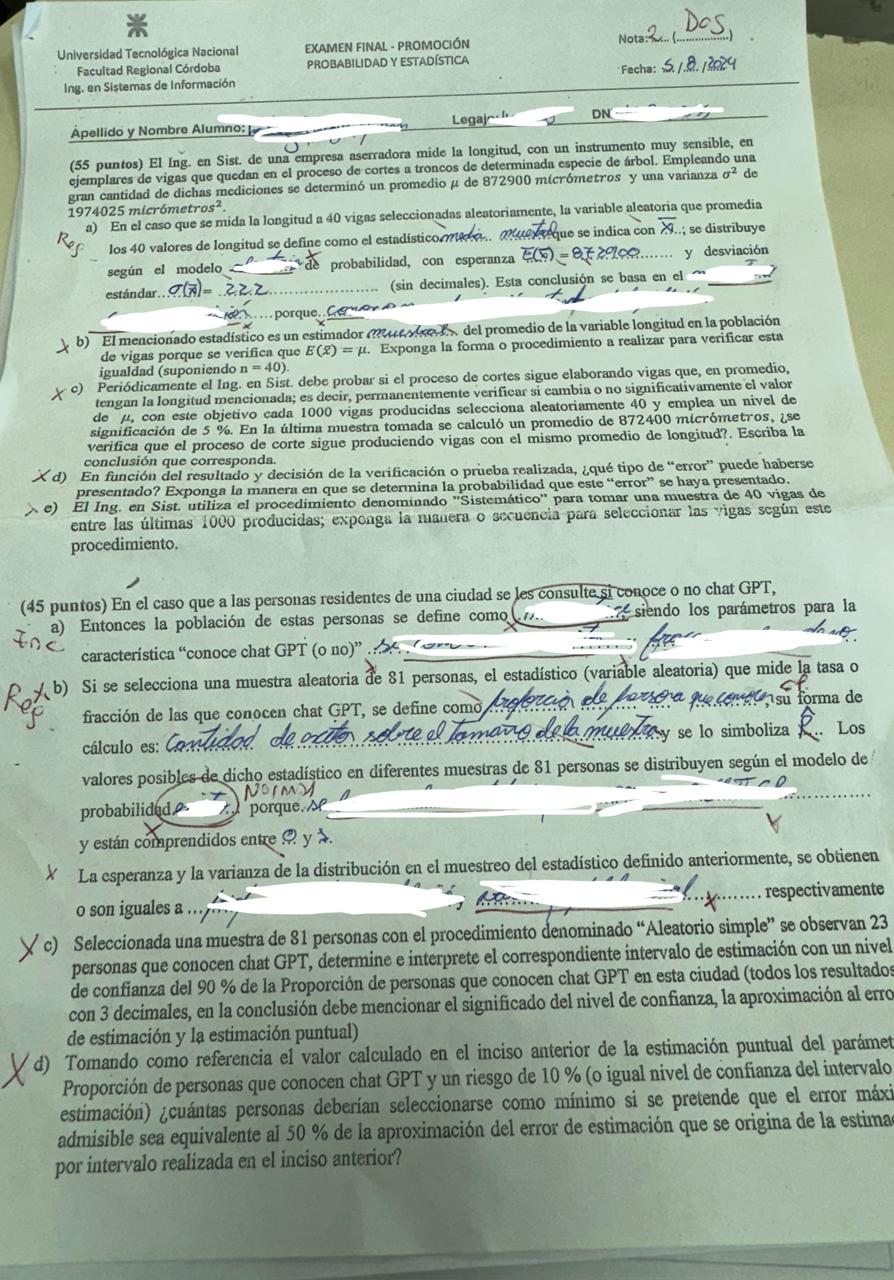 Universidad Tecnológica Nacional
Facultad Regional Córdoba
Ing. en Sistemas de Información
EXAMEN FINAL - PROMOCIÓN
PROBABILIDAD Y ESTADÍSTICA
Nota: 2 (DOS)
Fecha: 5/8/2024
Apellido y Nombre Alumno: Legajo: DN
(55 puntos) El Ing. en Sist. de una empresa aserradora mide la longitud, con un instrumento muy sensible, en
ejemplares de vigas que quedan en el proceso de cortes a troncos de determinada especie de árbol. Empleando una
gran cantidad de dichas mediciones se determinó un promedio μ de 872900 micrómetros y una varianza σ² de
1974025 micrómetros².
a) En el caso que se mida la longitud a 40 vigas seleccionadas aleatoriamente, la variable aleatoria que promedia
Reg los 40 valores de longitud se define como el estadístico media muestral que se indica con X̄..; se distribuye
según el modelo de probabilidad, con esperanza E(x̄) = 872900........ y desviación
estándar..σ(x̄)= 222........................ (sin decimales). Esta conclusión se basa en el
....porque..
X b) El mencionado estadístico es un estimador muestral del promedio de la variable longitud en la población
de vigas porque se verifica que E(x̄) = μ. Exponga la forma o procedimiento a realizar para verificar esta
igualdad (suponiendo n = 40).
X c) Periódicamente el Ing. en Sist. debe probar si el proceso de cortes sigue elaborando vigas que, en promedio,
tengan la longitud mencionada; es decir, permanentemente verificar si cambia o no significativamente el valor
de μ, con este objetivo cada 1000 vigas producidas selecciona aleatoriamente 40 y emplea un nivel de
significación de 5 %. En la última muestra tomada se calculó un promedio de 872400 micrómetros, ¿se
verifica que el proceso de corte sigue produciendo vigas con el mismo promedio de longitud?. Escriba la
conclusión que corresponda.
X d) En función del resultado y decisión de la verificación o prueba realizada, ¿qué tipo de “error” puede haberse
presentado? Exponga la manera en que se determina la probabilidad que este “error” se haya presentado.
X e) El Ing. en Sist. utiliza el procedimiento denominado "Sistemático" para tomar una muestra de 40 vigas de
entre las últimas 1000 producidas; exponga la manera o secuencia para seleccionar las vigas según este
procedimiento.
(45 puntos) En el caso que a las personas residentes de una ciudad se les consulte si conoce o no chat GPT,
a) Entonces la población de estas personas se define como siendo los parámetros para la
Inc característica “conoce chat GPT (o no)”
Reg b) Si se selecciona una muestra aleatoria de 81 personas, el estadístico (variable aleatoria) que mide la tasa o
fracción de las que conocen chat GPT, se define como proporción de persona que conocen, su forma de
cálculo es: Cantidad de exitos sobre el tamaño de la muestra y se lo simboliza P̂.. Los
valores posibles de dicho estadístico en diferentes muestras de 81 personas se distribuyen según el modelo de
probabilidad Normal porque
y están comprendidos entre 0 y 1.
X La esperanza y la varianza de la distribución en el muestreo del estadístico definido anteriormente, se obtienen
o son iguales a ... X ........ respectivamente
X c) Seleccionada una muestra de 81 personas con el procedimiento denominado “Aleatorio simple” se observan 23
personas que conocen chat GPT, determine e interprete el correspondiente intervalo de estimación con un nivel
de confianza del 90 % de la Proporción de personas que conocen chat GPT en esta ciudad (todos los resultados
con 3 decimales, en la conclusión debe mencionar el significado del nivel de confianza, la aproximación al erro
de estimación y la estimación puntual)
X d) Tomando como referencia el valor calculado en el inciso anterior de la estimación puntual del parámet
Proporción de personas que conocen chat GPT y un riesgo de 10 % (o igual nivel de confianza del intervalo
estimación) ¿cuántas personas deberían seleccionarse como mínimo si se pretende que el error máxi
admisible sea equivalente al 50 % de la aproximación del error de estimación que se origina de la estima
por intervalo realizada en el inciso anterior?